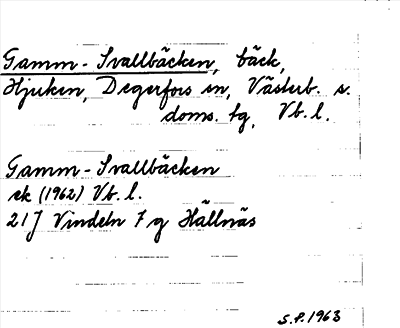 Gamm-Svallbäcken, bäck,
Hjuken, Degerfors sn, Västerb. s.
doms. tg, Vb. l.
Gamm-Svallbäcken
ek (1962) Vb. l.
21J Vindeln 7g Hällnäs
S.P. 1963